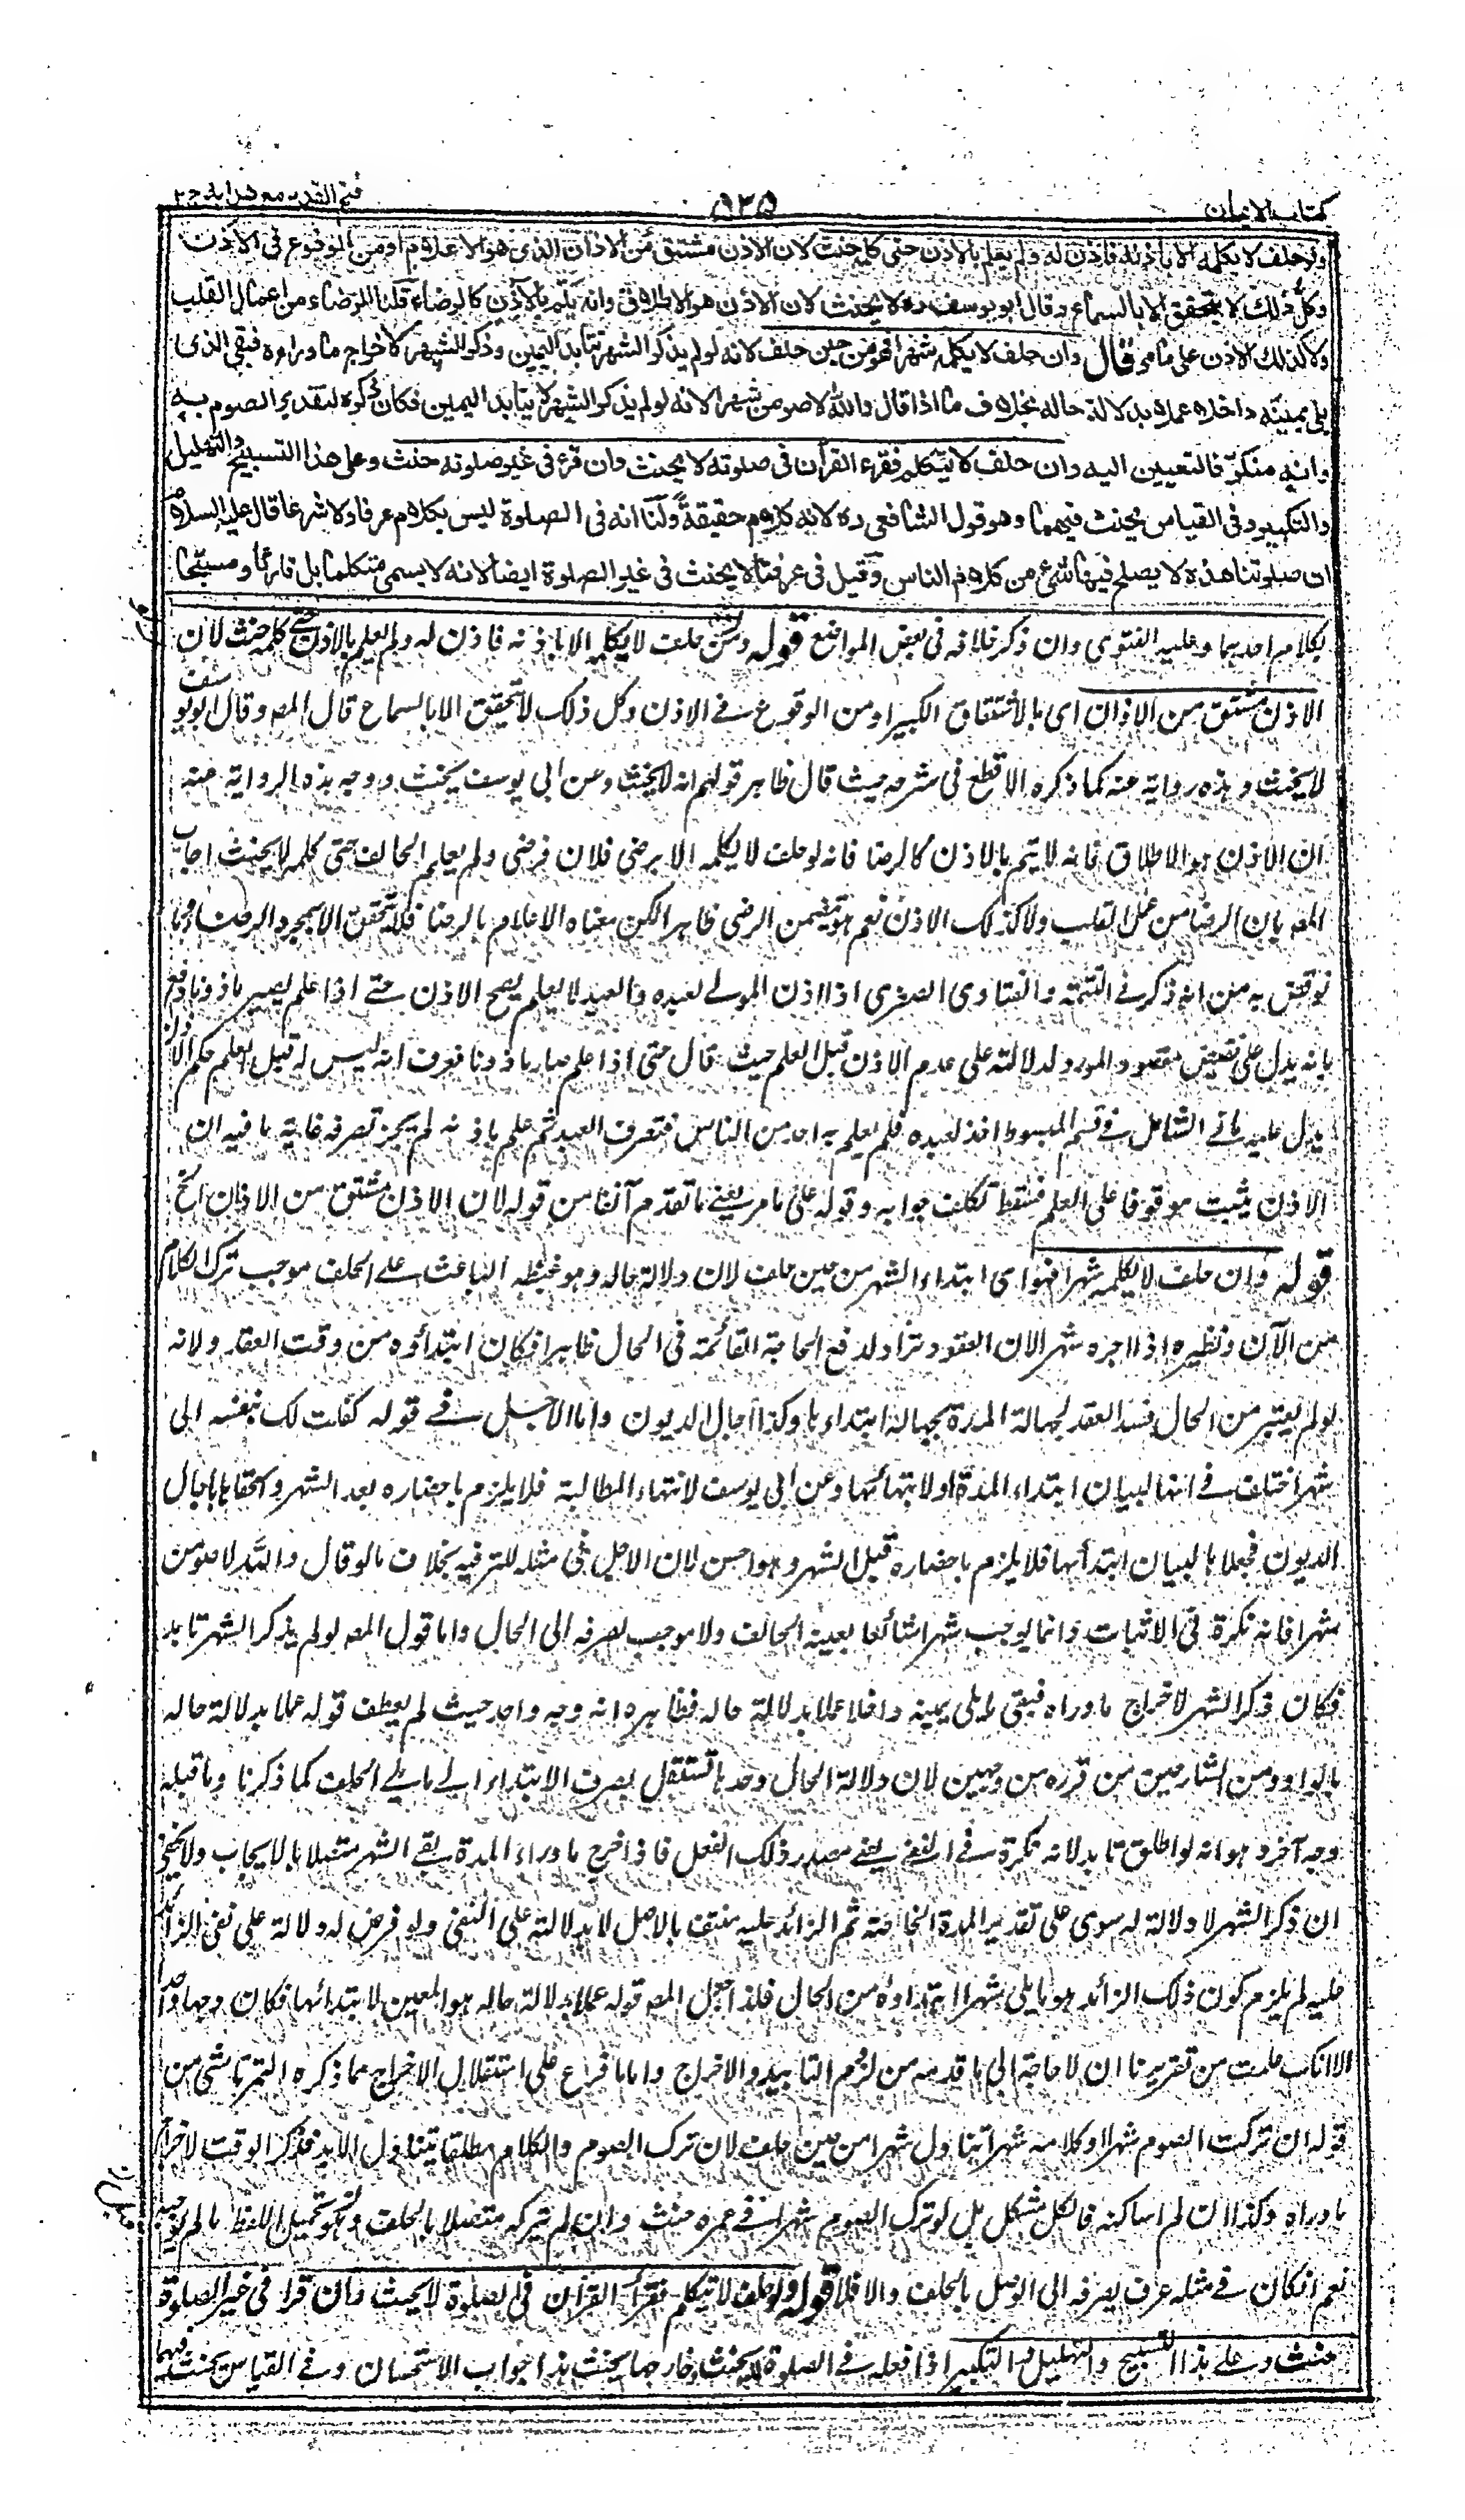 كتاب الايمان
٥٣٥
فتح القدير مع هدايه ج ٢
ولو حلف لا يكلمه الا باذنه فاذن له ولم يعلم بالاذن حتى كلمه حنث لان الاذن مشتق من الاذان الذى هو الاعلام او من الوقوع فى الاذن
وكل ذلك لا يتحقق الا بالسماع وقال ابو يوسف ره لا يحنث لان الاذن هو الاطلاق وانه يتم بالآذن كالرضاء قلنا الرضاء من اعمال القلب
ولا كذلك الاذن على ما مر قال وان حلف لا يكلمه شهرا فهو من حين حلف لانه لو لم يذكر الشهر تتابد اليمين وذكر الشهر لاخراج ما وراءه فبقى الذى
يلى يمينه داخلا عملا بدلالة حاله بخلاف ما اذا قال والله لاصومن شهرا لانه لو لم يذكر الشهر لا يتابد اليمين فكان ذكره لتقدير الصوم به
وانه منكر فالتعيين اليه وان حلف لا يتكلم فقرء القرآن فى صلوته لا يحنث وان قرء فى غير صلوته حنث وعلى هذا التسبيح والتهليل
والتكبير وفى القياس يحنث فيهما وهو قول الشافعى ره لانه كلام حقيقةً ولنا انه فى الصلوة ليس بكلام عرفا ولا شرعا قال عليه السلام
ان صلوتنا هذه لا يصلح فيها شئ من كلام الناس وقيل فى عرفنا لا يحنث فى غير الصلوة ايضا لانه لا يسمى متكلما بل قارئا ومسبّحا
بكلام احدهما وعليه الفتوى وان ذكر خلافه فى بعض المواضع قوله ولئن حلف لا يكلمه الا باذنه فاذن له ولم يعلم بالاذن حتى كلمه حنث لان
الاذن مشتق من الاذان اى بالاشتقاق الكبير او من الوقوع فے الاذن وكل ذلك لا يتحقق الا بالسماع قال المصـ وقال ابو يوسف
لا يحنث وهذه رواية عنه كما ذكره الاقطع فى شرحه حيث قال ظاهر قولهم انه لا يحنث وعن ابى يوسف يحنث ووجه هذه الرواية عنه
ان الاذن هو الاطلاق فانه لا يتم بالاذن كالرضا فانه لو حلف لا يكلمه الا برضى فلان فرضى ولم يعلم الحالف حتى كلمه لا يحنث اجاب
المصـ بان الرضا من عمل القلب ولا كذلك الاذن نعم هو يتضمن الرضى ظاهرا لكن معناه الاعلام بالرضا فلا يتحقق الا بمجرد الرضا وما
نوقض به من انه ذكر فے التتمة والفتاوى الصغرى اذا اذن المولے لعبده والعبد لا يعلم يصح الاذن حتے اذا علم يصير ماذونا دفع
بانه يدل على نقيض مقصود المورد لدلالته على عدم الاذن قبل العلم حيث قال حتى اذا علم صار ماذونا فعرف انه ليس له قبل العلم حكم الاذن
يدل عليه ما فے الشامل فے قسم المبسوط اذن لعبده فلم يعلم به احد من الناس فتصرف العبد ثم علم باذنه لم يجز تصرفه غاية ما فيه ان
الاذن يثبت موقوفا على العلم فسقط تكلف جوابه وقوله على ما مر يعنے ما تقدم آنفا من قوله لان الاذن مشتق من الاذان الخ
قوله وان حلف لا يكلمه شهرا فهو اى ابتداء الشهر من حين حلف لان دلالة حاله وهو غيظه الباعث على الحلف موجب ترك الكلام
من الآن ونظيره اذا اجره شهرا لان العقود تراد لدفع الحاجة القائمة فى الحال ظاهرا فكان ابتداؤه من وقت العقد ولانه
لو لم يعتبر من الحال فسد العقد لجهالة المدة بجهالة ابتداءها وكذا آجال الديون واما الاجل فے قوله كفلت لك بنفسه الى
شهر اختلف فے انها لبيان ابتداء المدة او لانتهائها وعن ابى يوسف لانتهاء المطالبة فلا يلزم باحضاره بعد الشهر والحقاها بآجال
الديون فجعلاها لبيان ابتدائها فلا يلزم باحضاره قبل الشهر وهو احسن لان الاجل فى مثله للترفيه بخلاف ما لو قال والله لاصومن
شهرا فانه نكرة فى الاثبات وانما يوجب شهرا شائعا بعينه الحالف ولا موجب لصرفه الى الحال واما قول المصـ لو لم يذكر الشهر تابد
فكان ذكر الشهر لاخراج ما وراه فبقى ما يلى يمينه داخلا عملا بدلالة حاله فظاهره انه وجه واحد حيث لم يعطف قوله عملا بدلالة حاله
بالواو ومن الشارحين من قرره من وجهين لان دلالة الحال وحدها تستقل بصرف الابتداء الے ما يلے الحلف كما ذكرنا وما قبله
وجه آخر وهو انه لو اطلق تابد لانه نكرة فے النفے يعنے مصدر ذلك الفعل فاذا خرج ما وراء المدة بقے الشهر متصلا بالايجاب ولا يخفى
ان ذكر الشهر لا دلالة له سوى على تقدير المدة الخاصة ثم الزائد عليه منتف بالاصل لا بدلالته على النفى ولو فرض له دلالة على نفى الزائد
عليه لم يلزم كون ذلك الزائد هو ما يلى شهرا ابتداؤه من الحال فلذا جعل المصـ قوله عملا بدلالة حاله هو المعين لابتدائها فكان وجها واحدا
الا انك علمت من تقريرنا ان لا حاجة الى ما قدمه من لزوم التابيد والاخراج واما ما فرع على استقلال الاخراج مما ذكره التمرتاشى من
قوله ان تركت الصوم شهرا او كلامه شهرا يتناول شهرا من حين حلف لان ترك الصوم والكلام مطلقا يتناول الابد فذكر الوقت لاخراج
ما وراه وكذا ان لم اساكنه فالكل مشكل بل لو ترك الصوم شهرا فے عمره حنث وان لم يتركه متصلا بالحلف وهو محتمل اللفظ ما لم يوجبه
نعم ان كان فے مثله عرف يصرفه الى الوصل بالحلف والا فلا قوله ولو حلف لا يتكلم فقرأ القرآن فى الصلوة لا يحنث وان قرا فى غير الصلوة
حنث وعلے هذا التسبيح والتهليل والتكبير اذا فعله فے الصلوة لا يحنث وخارجها يحنث هذا جواب الاستحسان وفے القياس يحنث فيهما